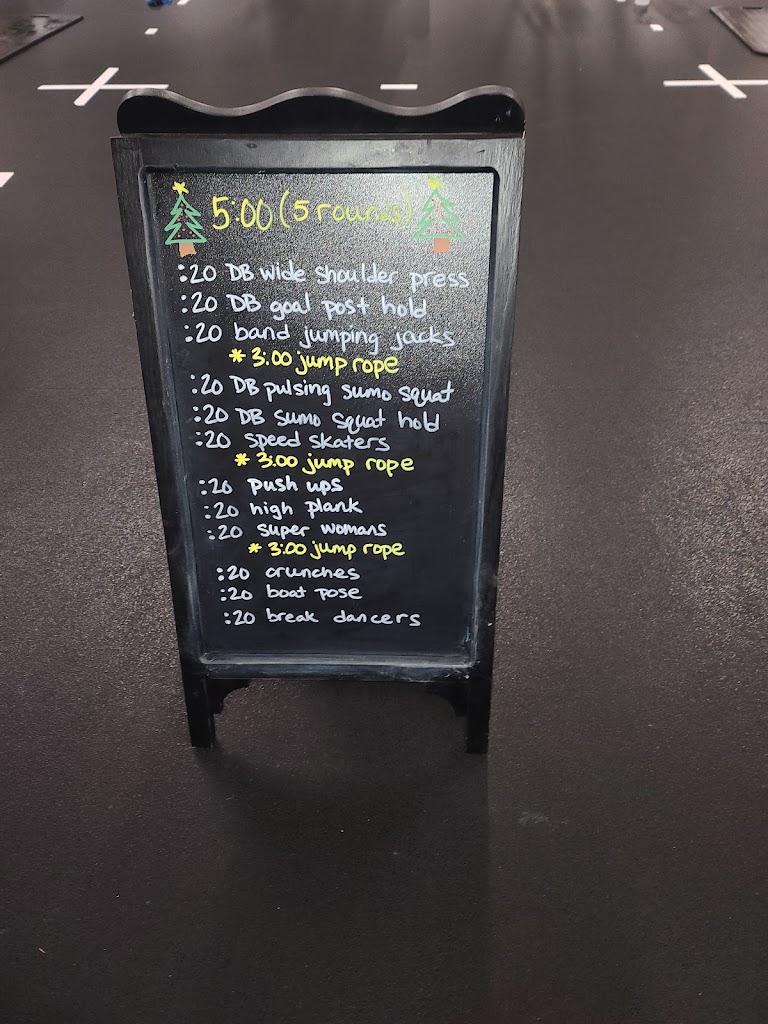 5:00 (5 rounds)
:20 DB wide shoulder press
:20 DB goal post hold
:20 band jumping jacks
* 3:00 jump rope
:20 DB pulsing sumo squat
:20 DB sumo squat hold
:20 speed skaters
* 3:00 jump rope
:20 push ups
:20 high plank
:20 super womans
* 3:00 jump rope
:20 crunches
:20 boat pose
:20 break dancers